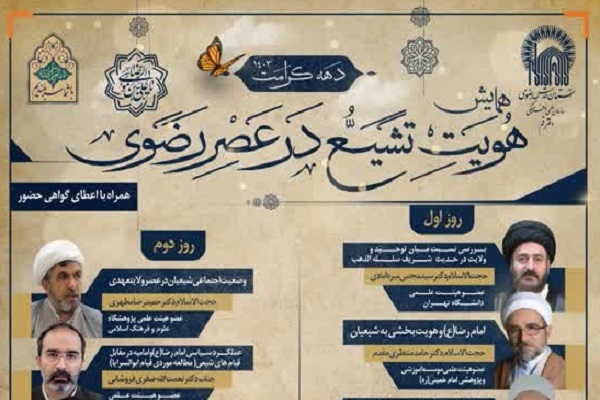 دهه کرامت ۱۴۰۳
همایش
هویت تشیع در عصر رضوی
آستان قدس رضوی
دفتر قم
همراه با اعطای گواهی حضور
روز اول
بررسی نسبت میان توحید و
ولایت در حدیث شریف سلسله الذهب
حجت‌الاسلام دکتر سیدمجتبی میردامادی
عضو هیئت علمی
دانشگاه تهران
امام رضا(ع) و هویت بخشی به شیعیان
حجت‌الاسلام دکتر حامد منتظری مقدم
عضو هیئت علمی موسسه آموزشی
و پژوهشی امام خمینی(ره)
روز دوم
وضعیت اجتماعی شیعیان در عصر ولایتعهدی
حجت‌الاسلام دکتر حمیدرضا مطهری
عضو هیئت علمی پژوهشگاه
علوم و فرهنگ اسلامی
عملکرد سیاسی امام رضا(ع) و امامیه در مقابل
قیام های شیعی (مطالعه موردی قیام ابوالسرایا)
جناب دکتر نعمت الله صفری فروشانی
عضو هیئت علمی